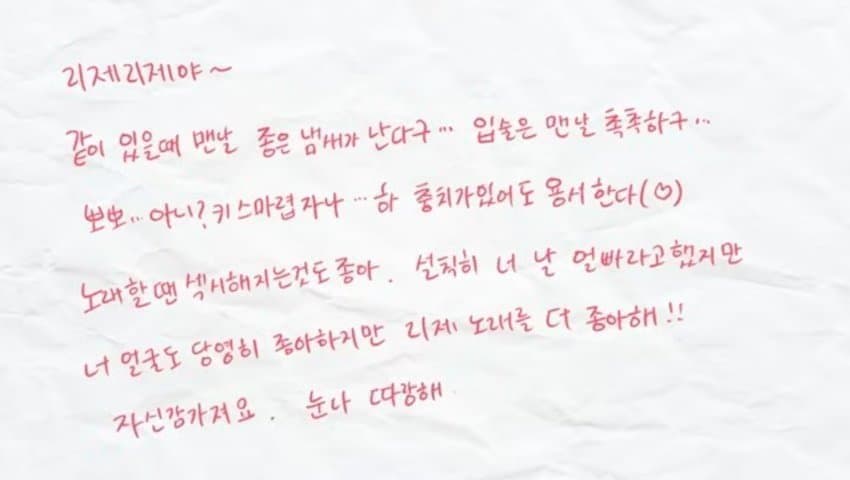 리제리제야~
같이 있을때 맨날 좋은 냄새가 난다구… 입술은 맨날 촉촉하구…
뽀뽀… 아니? 키스마렵자나… 하 충치가있어도 용서한다(♡)
노래할땐 섹시해지는것도 좋아. 설칙히 너 날 얼빠라고했지만
너 얼굴도 당영히 좋아하지만 리제 노래를 더 좋아해!!
자신감가져요. 눈나 따랑해